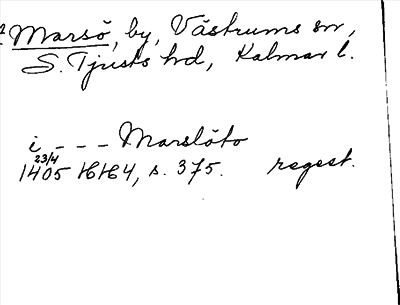 Marsö, by, Västrums sn,
S. Tjusts hd, Kalmar l.
i - - - Marslöto
23/4
1405 HH 4, s. 375. regest.